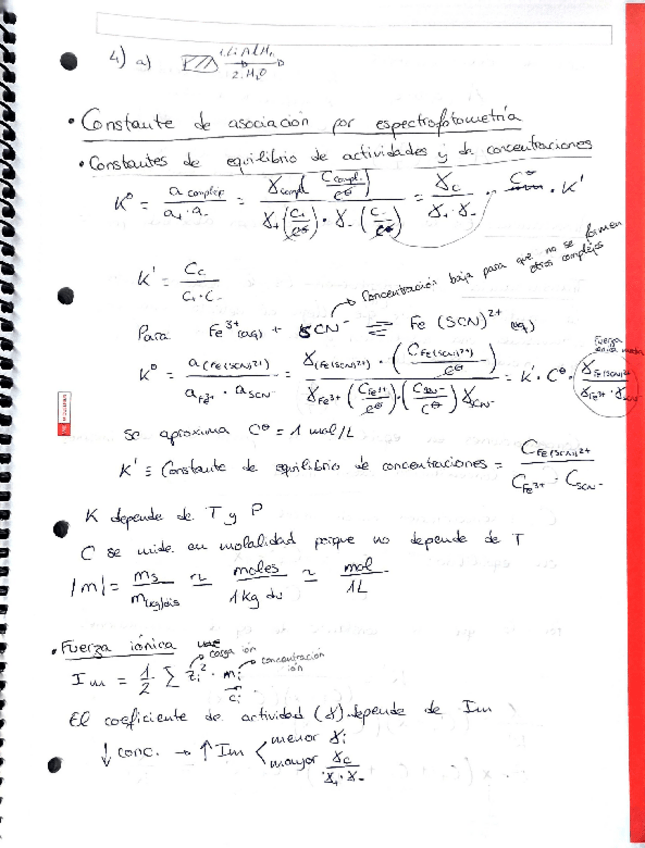 4) a) 1. LiAlH4
2. H2O
• Constante de asociación por espectrofotometría
• Constantes de equilibrio de actividades y de concentraciones
K° = a complej / a+ · a- = γcompl (Ccompl. / C°) / γ+ (C+ / C°) · γ- (C- / C°) = γc / γ+ · γ- · C° · K'
K' = Cc / C+ · C-
→ Concentración baja para que no se formen otros complejos
Para Fe3+(aq) + SCN- ⇌ Fe (SCN)2+ (aq)
K° = a(Fe(SCN)2+) / aFe3+ · aSCN- = γ(Fe(SCN)2+) · (CFe(SCN)2+ / C°) / γFe3+ (CFe3+ / C°) · (CSCN- / C°) γSCN- = K' · C° · γFe(SCN)2+ / γFe3+ · γSCN-
Fuerza
Se aproxima C° = 1 mol/L
K' ≡ Constante de equilibrio de concentraciones = CFe(SCN)2+ / CFe3+ · CSCN-
K depende de T y P
C se mide en molalidad porque no depende de T
|m| = ms / mkg/dis ≃ moles / 1 kg dis ≃ mol / 1L
• Fuerza iónica
Im = 1/2 Σ zi² · mi
→ carga ión
→ concentración ión
ci
El coeficiente de actividad (γ) depende de Im
↓ conc. → ↑ Im < menor γi
mayor γc / γ+ · γ-